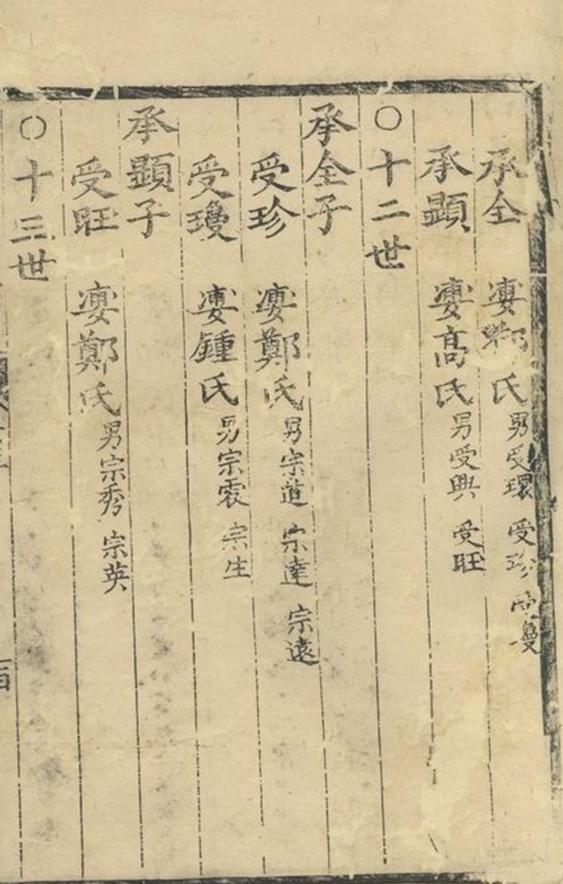 承全 娶鄭氏 男受環 受珍 受瓊
承顯 娶高氏 男受興 受旺
○十二世
承全子
受珍 娶鄭氏 男宗道 宗達 宗遠
受瓊 娶鍾氏 男宗震 宗生
承顯子
受旺 娶鄭氏 男宗秀 宗英
○十三世